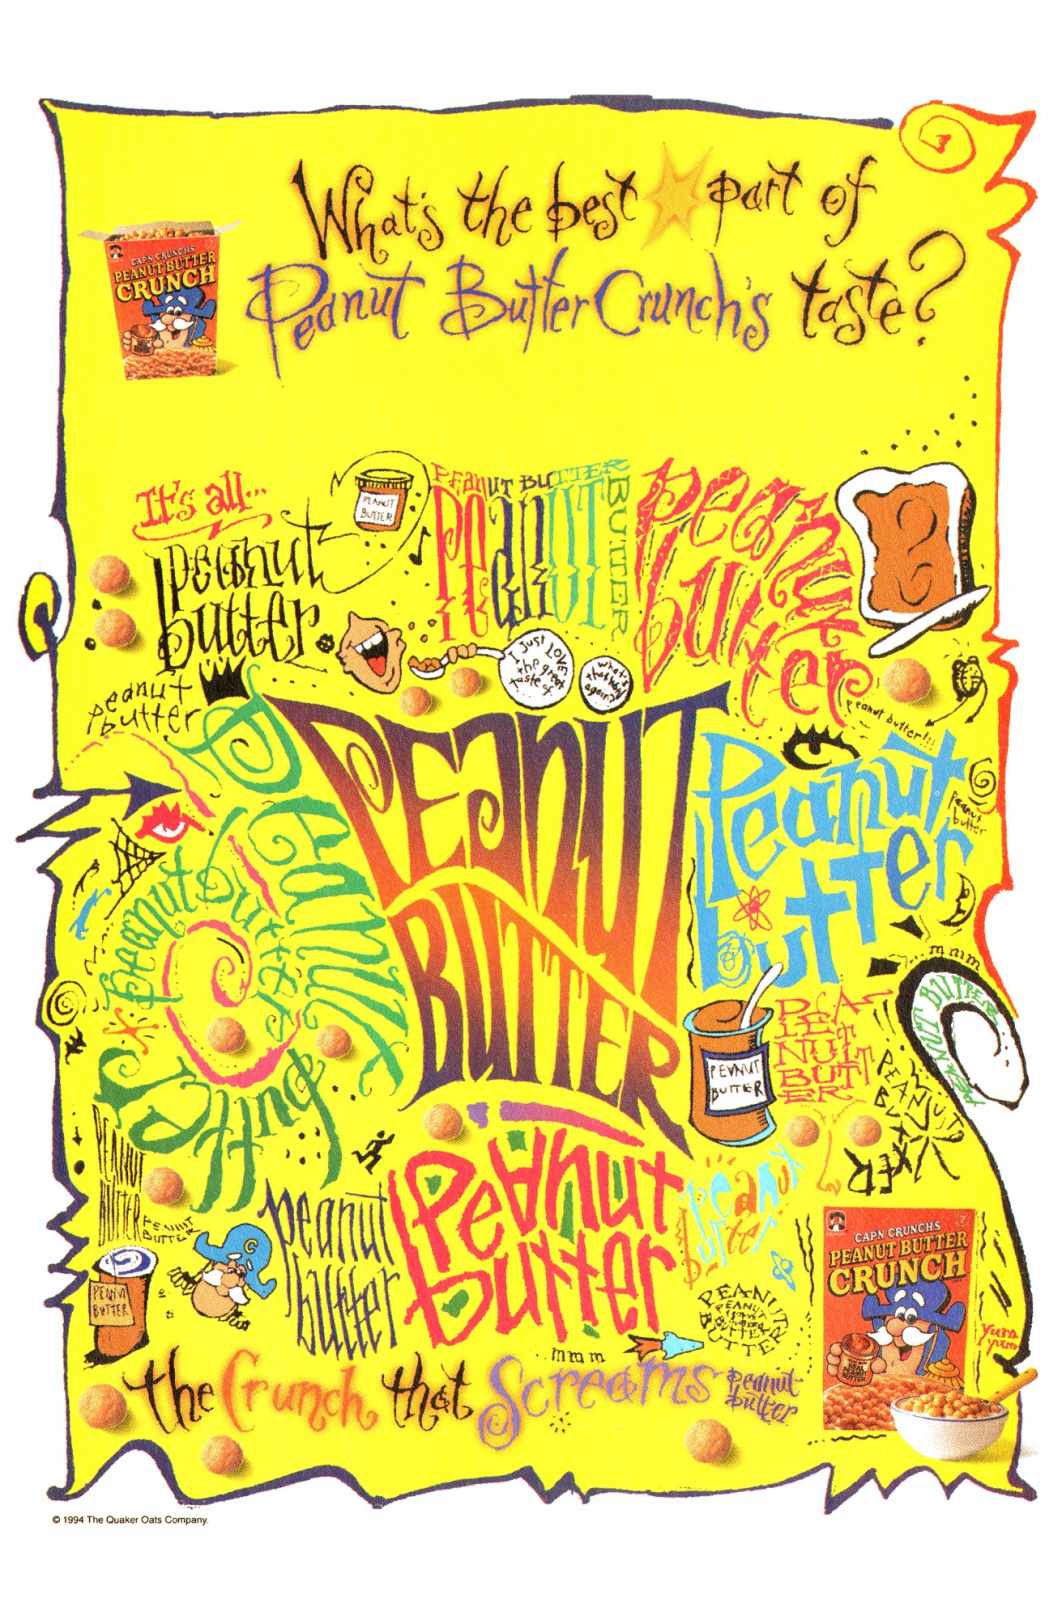 What's the best part of
Peanut Butter Crunch's taste?
CAP'N CRUNCH'S
PEANUT BUTTER
CRUNCH
It's all...
peanut
butter
PEANUT
BUTTER
PEANUT BUTTER
PEANUT
BUTTER
peanut
butter
I just LOVE
the great
taste of...
what's
that word
again?
peanut butter!!!
peanut
butter
peanut
butter
Peanut
Butter
PEANUT
BUTTER
Peanut
butter
peanut
butter
mmm
PEANUT BUTTER
PEANUT
BUTTER
PEA-
LET
NUT
BUTT
ER
PEANUT
BUTTER
PEANUT
BUTTER
PEANUT
BUTTER
peanut
butter
Peanut
butter
peanut
butter
PEANUT
BUTTER
PEANUT
BUTTER
CAP'N CRUNCH'S
PEANUT BUTTER
CRUNCH
REAL
PEANUT
BUTTER
yum
yum
...mmm
the Crunch that Screams peanut
butter
© 1994 The Quaker Oats Company.